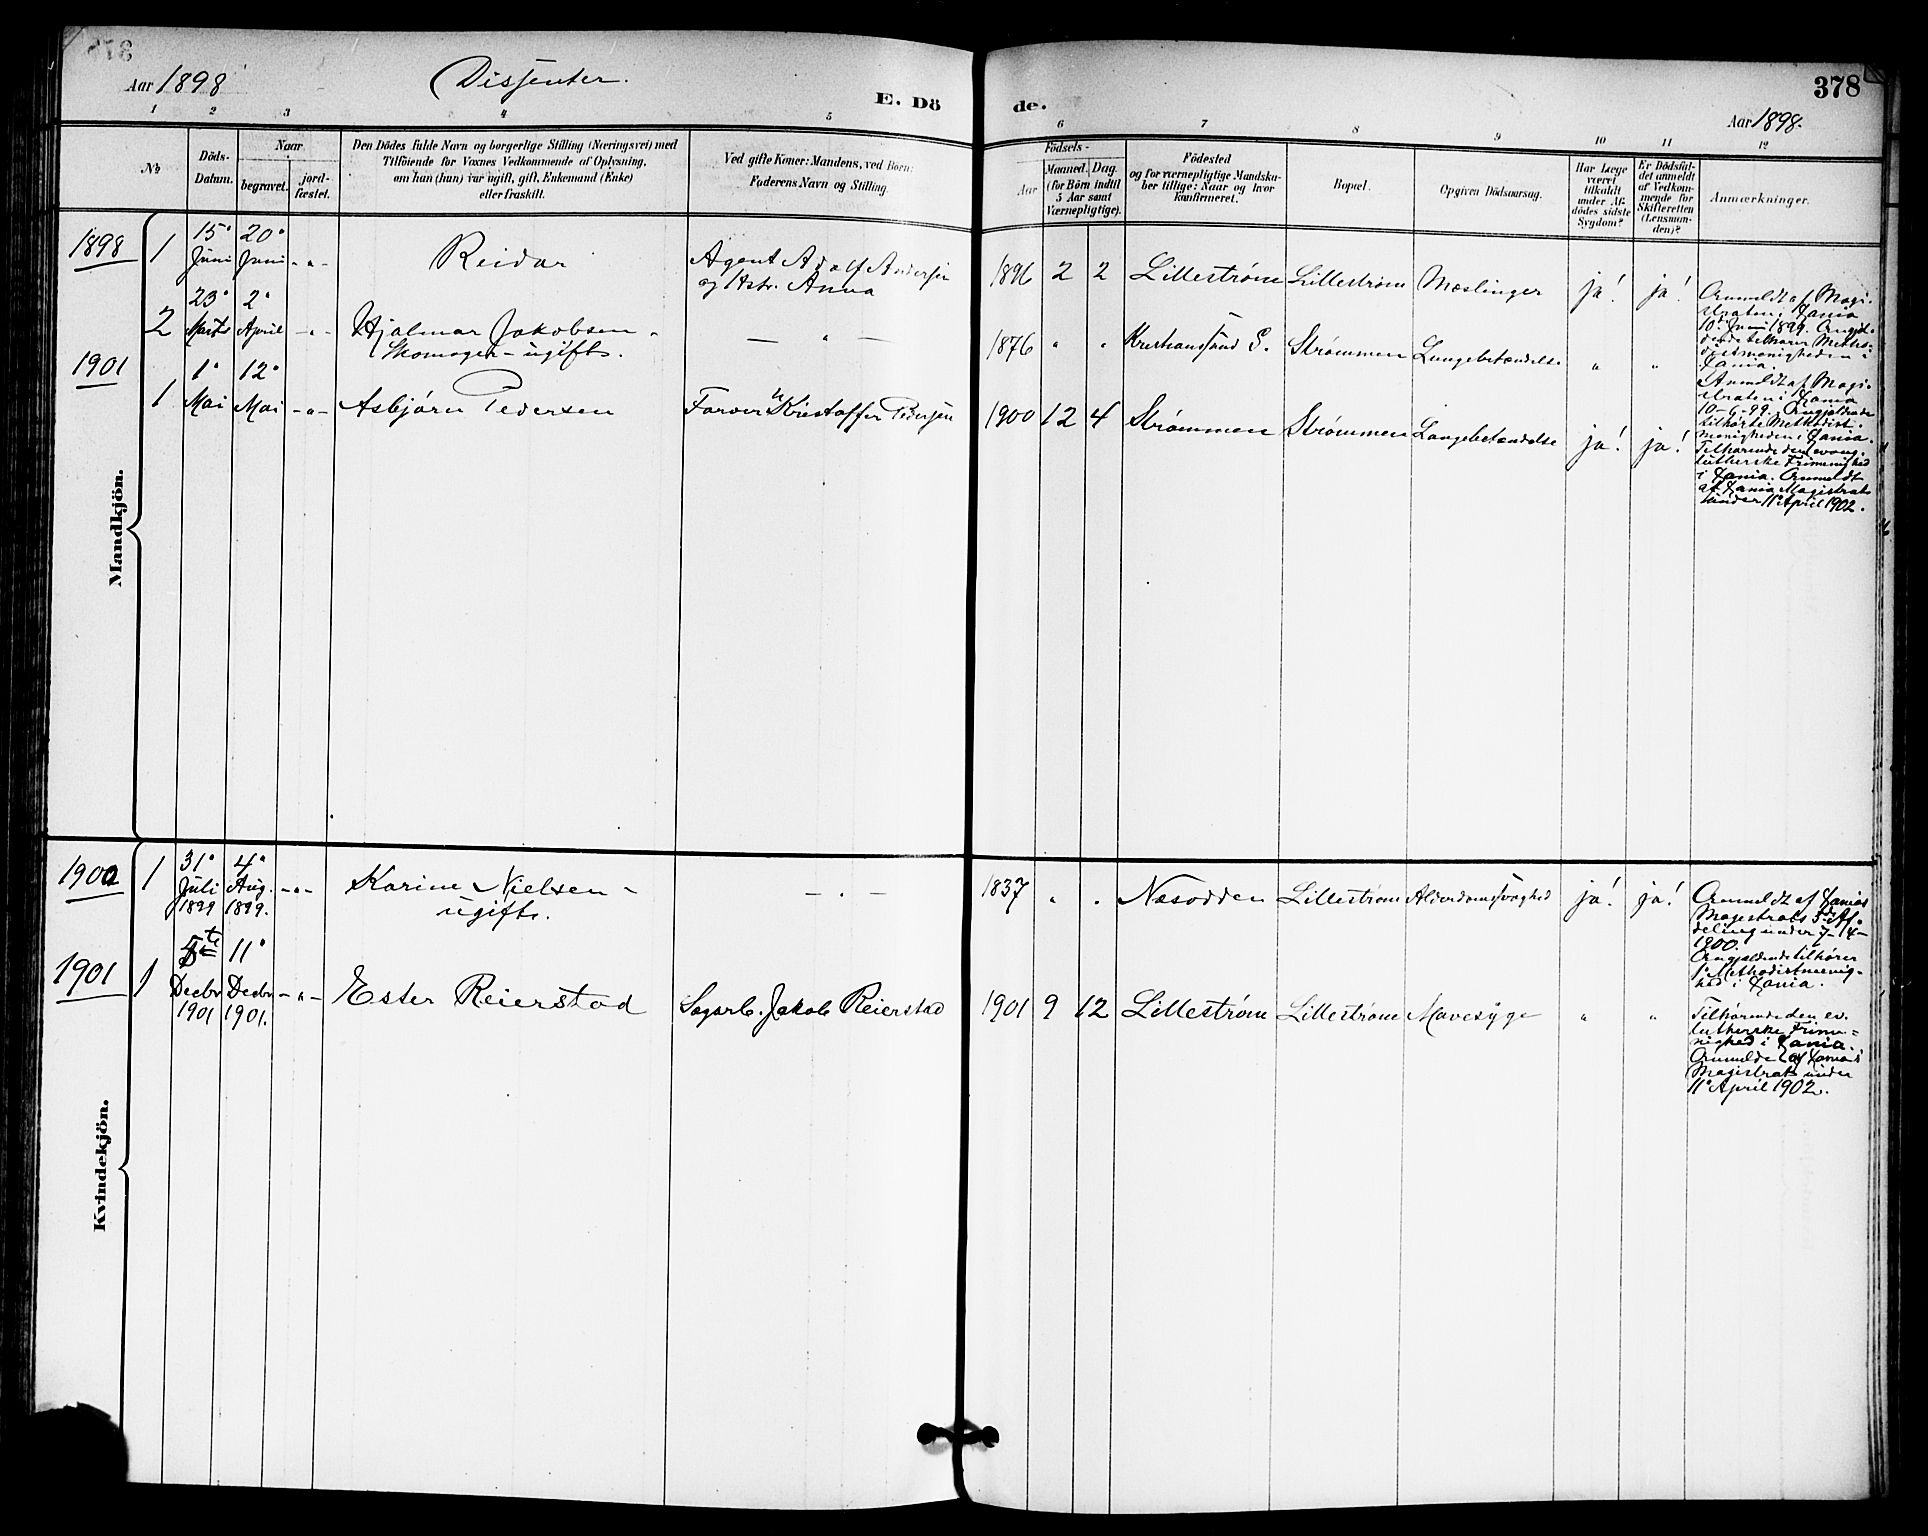 Aar 1898
Dissenter.
E. Dö
de.
378
Aar 1898.
1 2 3 4 5 6 7 8 9 10 11 12
No
Döds-
Datum.
Naar
begravet.
jord-
fæstet.
Den Dödes fulde Navn og borgerlige Stilling (Næringsvei) med
Tilföiende for Voxnes Vedkommende af Oplysning,
om han (hun) var ugift, gift, Enkemand (Enke)
eller fraskilt.
Ved gifte Koner: Mandens, ved Börn:
Faderens Navn og Stilling.
Födsels-
Aar
Maaned.
Dag.
(for Börn indtil
5 Aar samt
Værnepligtige).
Födested
og for værnepligtige Mandska-
ber tillige: Naar og hvor
konfirmeret.
Bopæl.
Opgiven Dödsaarsag.
Har Læge
været
tilkaldt
under Af-
dödes sidste
Sygdom?
Er Dödsfal-
det anmeldt
af Vedkom-
mende for
Skifteretten
(Lensman-
den)?
Anmærkninger.
Mandkjön.
1898
1
15°
Juni
20°
Juni
- " -
Reidar
Agent Adolf Andersen
og Hstr. Anna
1896 2 2
Lillestrøm
Lillestrøm
Mæslinger
ja!
ja!
Anmeldt af Magi-
straten i Xania
10° Juni 1899. Angjæl-
dende tilhører Metho-
distmenigheden i
Xania.
2
23°
Marts
2°
April
- " -
Hjalmar Jakobsen -
Skomager - ugift.
— " —
1876 " "
Kristianssund S.
Strømmen
Lungebetændelse
"
"
Anmeldt af Magi-
straten i Xania
10-6-99. Angjældende
tilhørte Methodist-
menigheden i Xania.
1901
1
1°
Mai
12°
Mai
- " -
Asbjørn Pedersen
Farver Kristoffer Pedersen
1900 12 4
Strømmen
Strømmen
Lungebetændelse
ja!
ja!
Tilhørende den evang.
lutherske Frimenighed
i Xania. Anmeldt
af Xania Magistrat
under 11° April 1902.
Kvindekjön.
1900
1
31°
Juli
1899
4°
Aug.
1899.
- " -
Karine Nielsen -
ugift.
— " —
1837 " "
Næsodden
Lillestrøm
Alderdomssvaghed
ja!
ja!
Anmeldt af Xanias
Magistrats 5de Af-
deling under 7-/4-
1900.
Angjældende tilhører
1° Methodistmenig-
hed i Xania.
1901
1
5te
Decbr
1901
11°
Decbr
1901.
- " -
Ester Reierstad
Sagarb. Jakob Reierstad
1901 9 12
Lillestrøm
Lillestrøm
Mavesyge
"
"
Tilhørende den ev.
lutherske Frime-
nighed i Xania.
Anmeldt af Xania's
Magistrat under
11° April 1902.